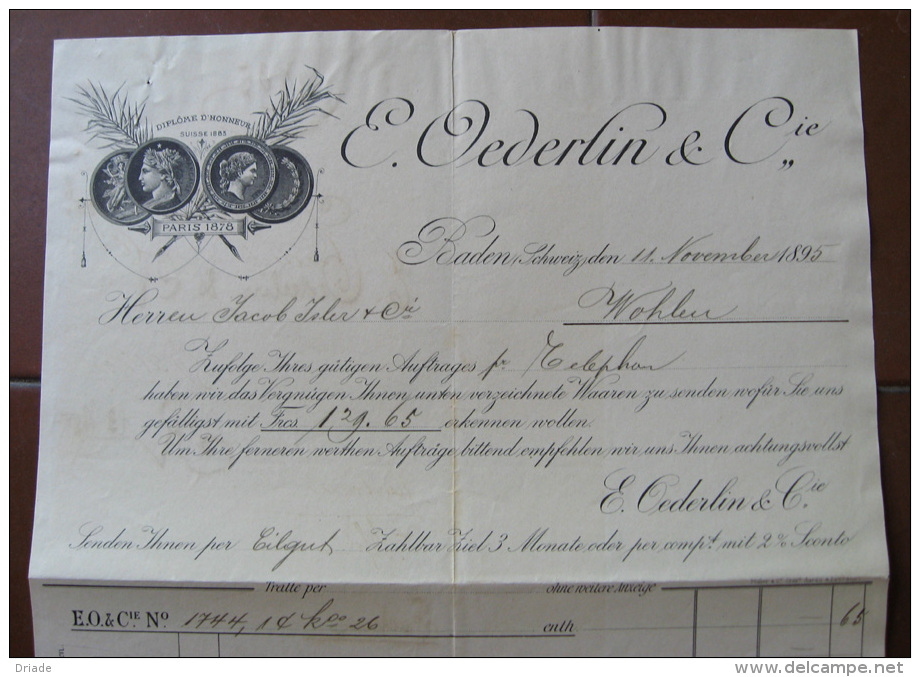 DIPLÔME D'HONNEUR
SUISSE 1883
PARIS 1878
E. Oederlin & Cie
Baden, Schweiz, den 11. November 1895
Herren Jacob Isler & Cie Wohlen
Zufolge Ihres gütigen Auftrages pr. Telephon
haben wir das Vergnügen Ihnen unten verzeichnete Waaren zu senden wofür Sie uns
gefälligst mit Frcs. 129.65 erkennen wollen.
Um Ihre ferneren werthen Aufträge bittend empfehlen wir uns Ihnen achtungsvollst
E. Oederlin & Cie
Senden Ihnen per Eilgut Zahlbar Ziel 3 Monate, oder per compt. mit 2% Sconto
Tratte per ohne weitere Anzeige
E.O. & CIE No 1744, 1 Ko 26 enth. 65
Driade
www.delcampe.net